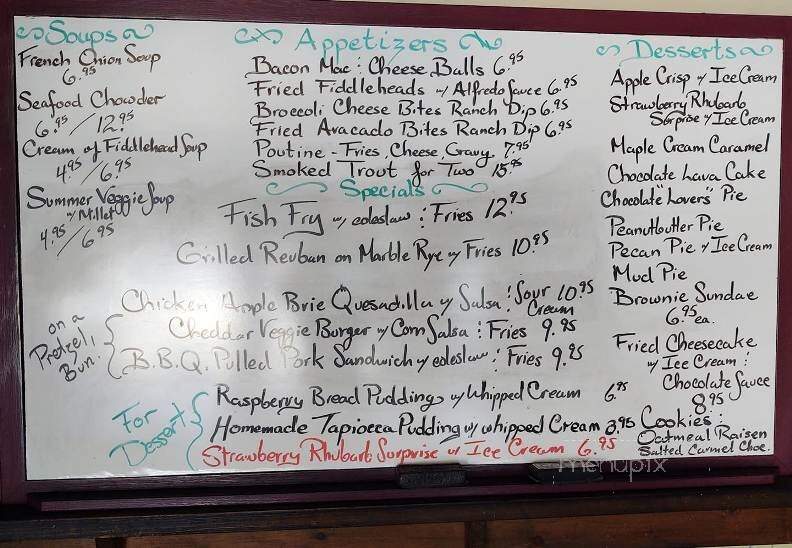 Soups
French Onion Soup
6.95
Seafood Chowder
6.95/12.95
Cream of Fiddlehead Soup
4.95/6.95
Summer Veggie Soup
w/ Millet
4.95/6.95
Appetizers
Bacon Mac : Cheese Balls 6.95
Fried Fiddleheads w/ Alfredo Sauce 6.95
Broccoli Cheese Bites Ranch Dip 6.95
Fried Avacado Bites Ranch Dip 6.95
Poutine - Fries, Cheese, Gravy 7.95
Smoked Trout for Two 15.95
Specials
Fish Fry w/ coleslaw : Fries 12.95
Grilled Reuban on Marble Rye w/ Fries 10.95
Chicken Apple Brie Quesadilla w/ Salsa : Sour Cream 10.95
on a Pretzel Bun.
Cheddar Veggie Burger w/ Corn Salsa : Fries 9.95
B.B.Q. Pulled Pork Sandwich w/ coleslaw : Fries 9.95
For Dessert
Raspberry Bread Pudding w/ Whipped Cream 6.95
Homemade Tapiocca Pudding w/ whipped Cream 3.95
Strawberry Rhubarb Surprise w/ Ice Cream 6.95
Desserts
Apple Crisp w/ Ice Cream
Strawberry Rhubarb
Surprise w/ Ice Cream
Maple Cream Caramel
Chocolate Lava Cake
Chocolate "Lovers" Pie
Peanutbutter Pie
Pecan Pie w/ Ice Cream
Mud Pie
Brownie Sundae
6.95 ea.
Fried Cheesecake
w/ Ice Cream :
Chocolate Sauce
8.95
Cookies :
Oatmeal Raisen
Salted Carmel Choc.
menupix